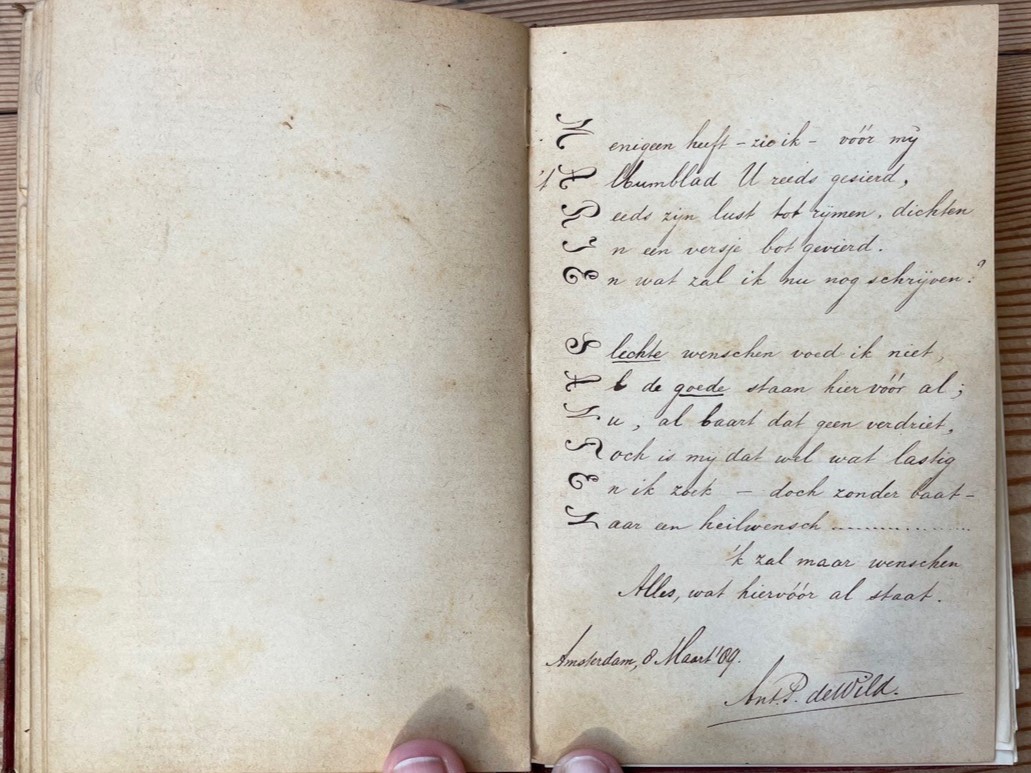 Menigeen heeft – zie ik – vóór mij
't Albumblad U reeds gesierd,
Reeds zijn lust tot rijmen, dichten
In een versje bot gevierd.
En wat zal ik nu nog schrijven?
Slechte wenschen voed ik niet,
Al de goede staan hier vóór al;
Nu, al baart dat geen verdriet,
Toch is mij dat wel wat lastig
En ik zoek – doch zonder baat –
Naar een heilwensch ..................
'k zal maar wenschen
Alles, wat hiervóór al staat.
Amsterdam, 8 Maart '89.
Ant. P. de Wild.